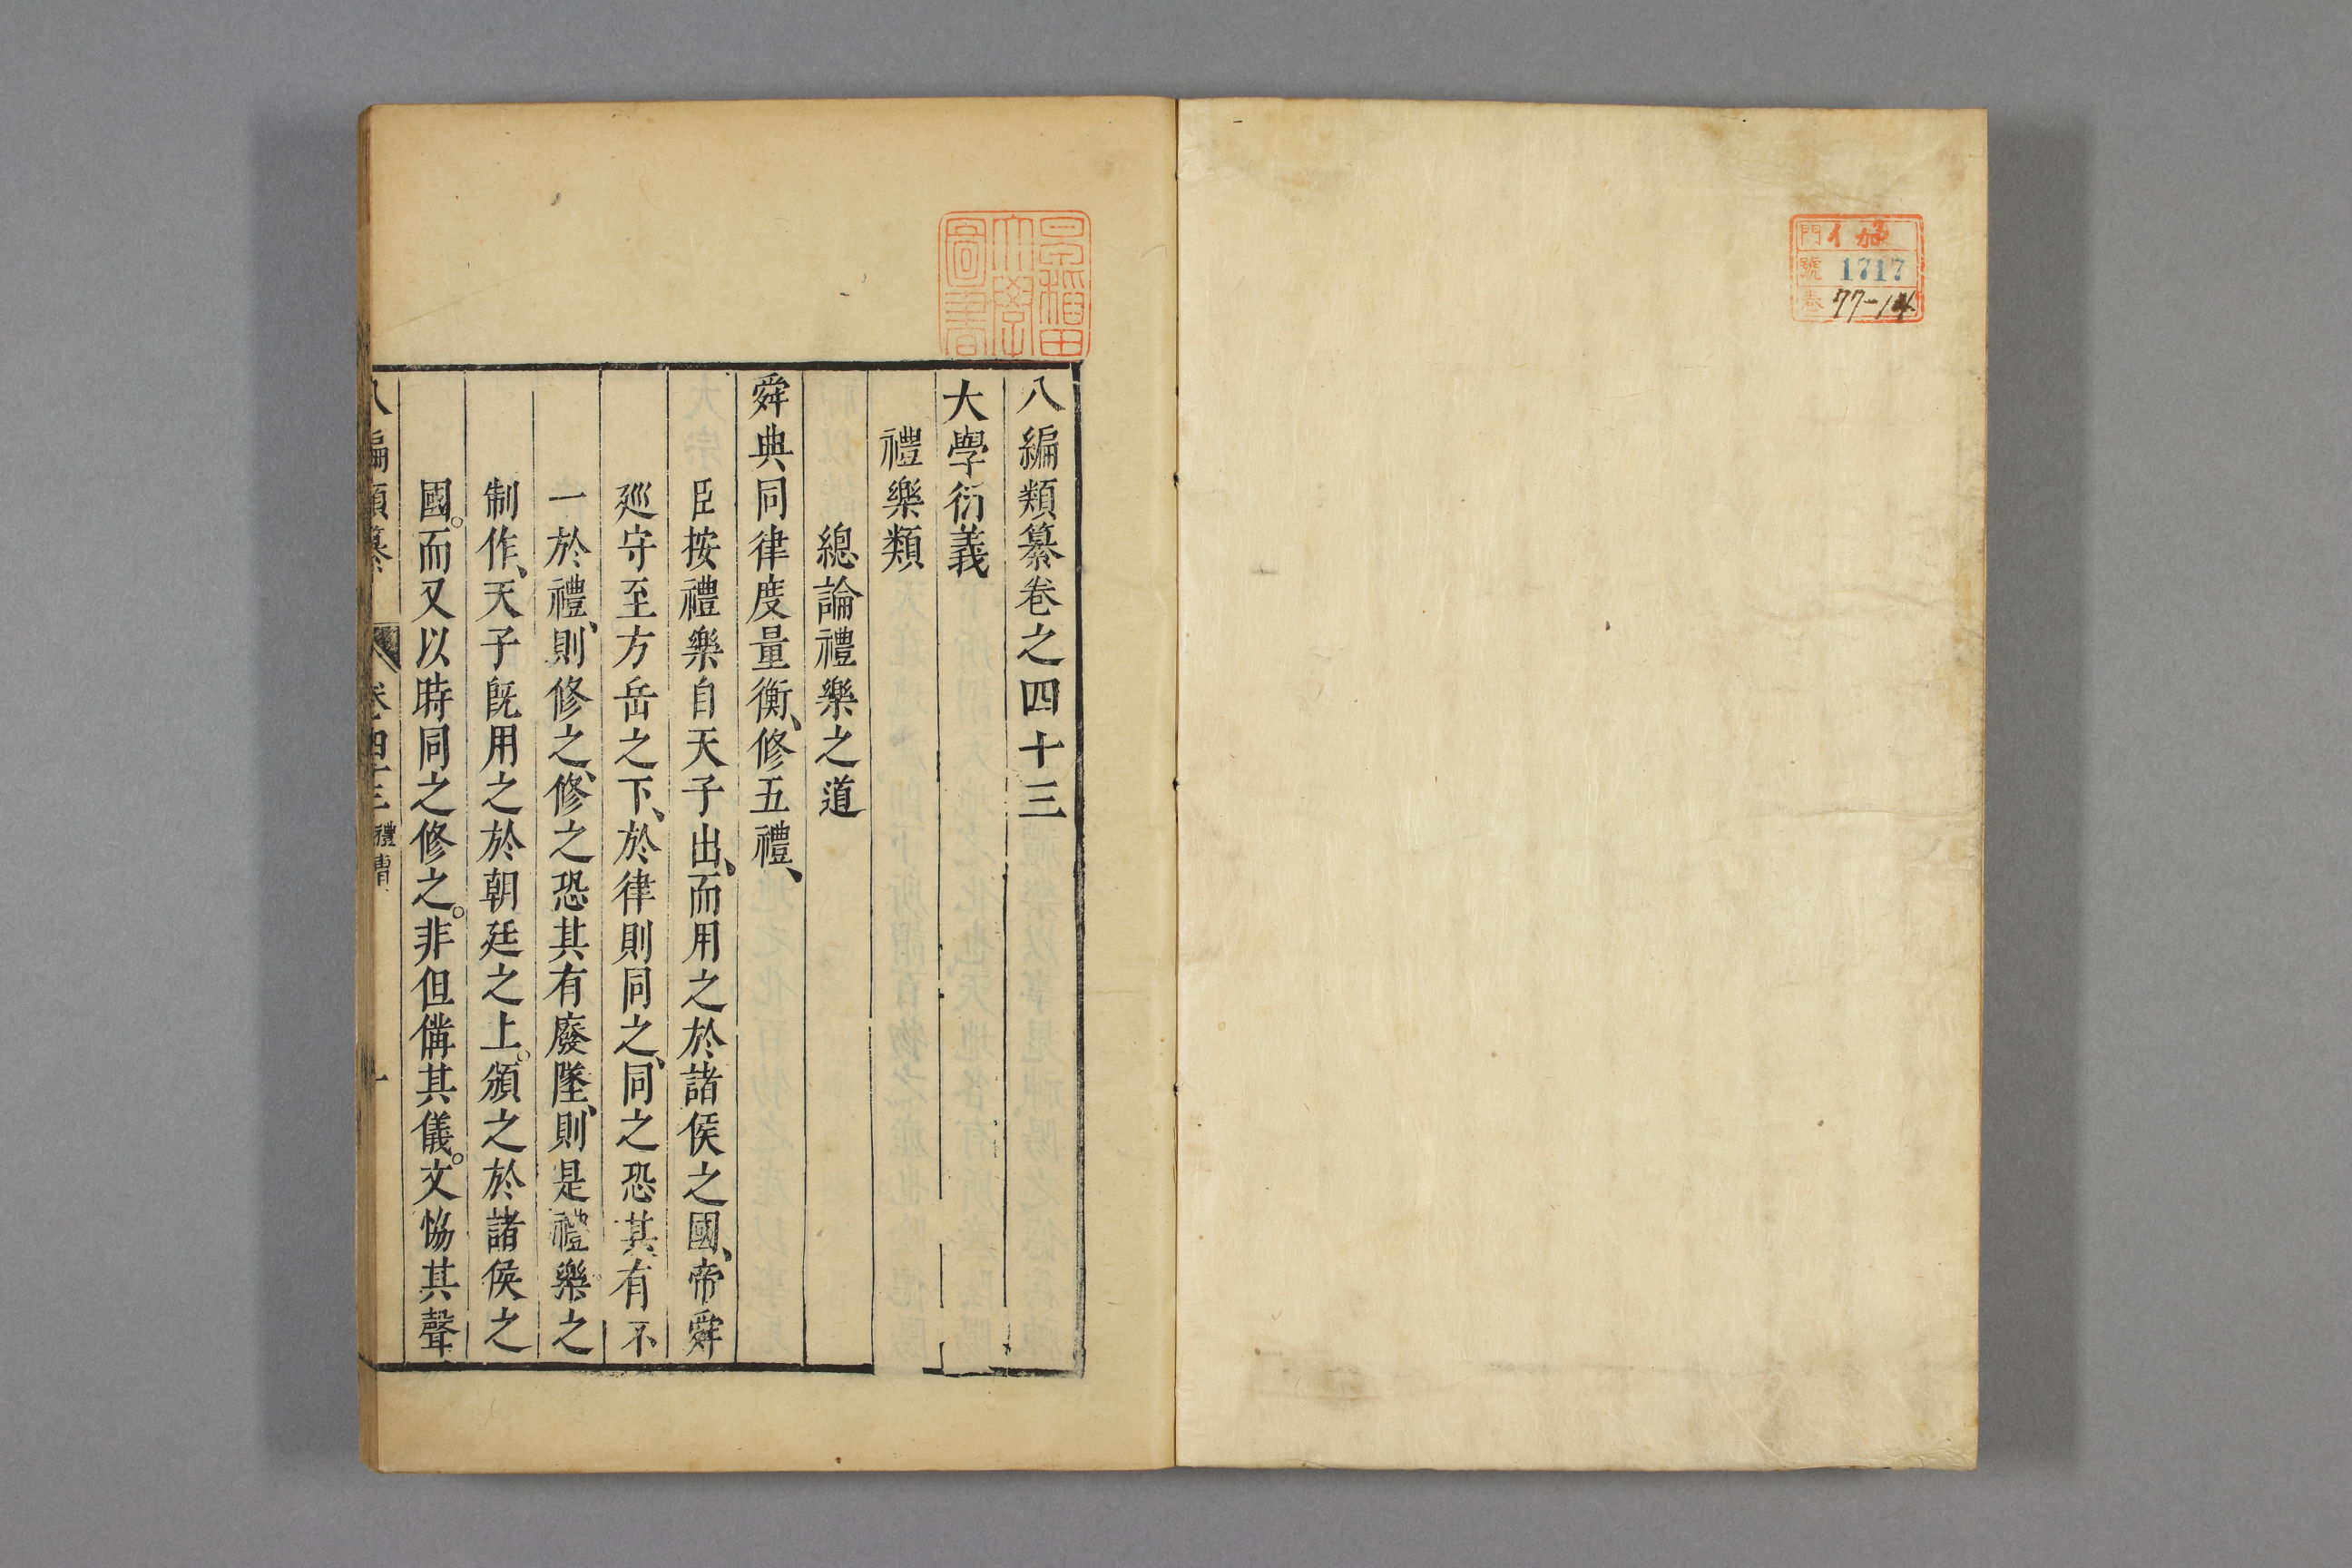 門 イ 加3
號 1717
卷 77-14
早稲田
大學
圖書
八編類纂卷之四十三
大學衍義
禮樂類
總論禮樂之道
舜典同律度量衡、修五禮、
臣按禮樂自天子出、而用之於諸侯之國、帝舜
廵守至方岳之下、於律則同之、同之恐其有不
一於禮、則修之、修之恐其有廢墜、則是禮樂之
制作、天子旣用之於朝廷之上。頒之於諸侯之
國。而又以時同之修之。非但備其儀。文恊其聲
八編類纂 卷四十三 禮曹 一